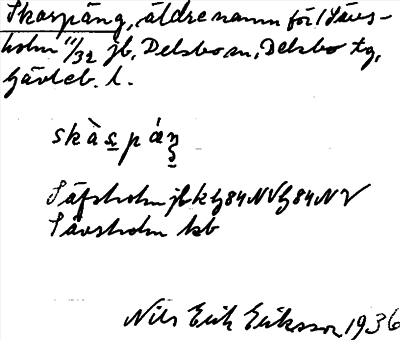 Skarpäng, äldre namn för Sävs-
holm 11/32 jb, Delsbo sn, Delsbo tg,
Gävleb. l.
skàs̲páŋ̲
Säfsholm jbk G84NV G84NV
Sävsholm kb
Nils Erik Eriksson 1936